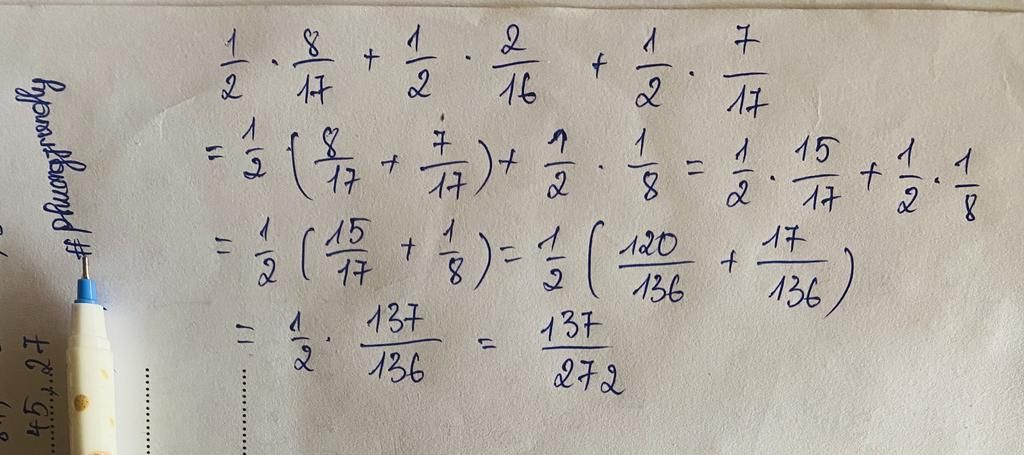 1/2 · 8/17 + 1/2 · 2/16 + 1/2 · 7/17
= 1/2 · (8/17 + 7/17) + 1/2 · 1/8 = 1/2 · 15/17 + 1/2 · 1/8
= 1/2 (15/17 + 1/8) = 1/2 (120/136 + 17/136)
= 1/2 · 137/136 = 137/272
45
27